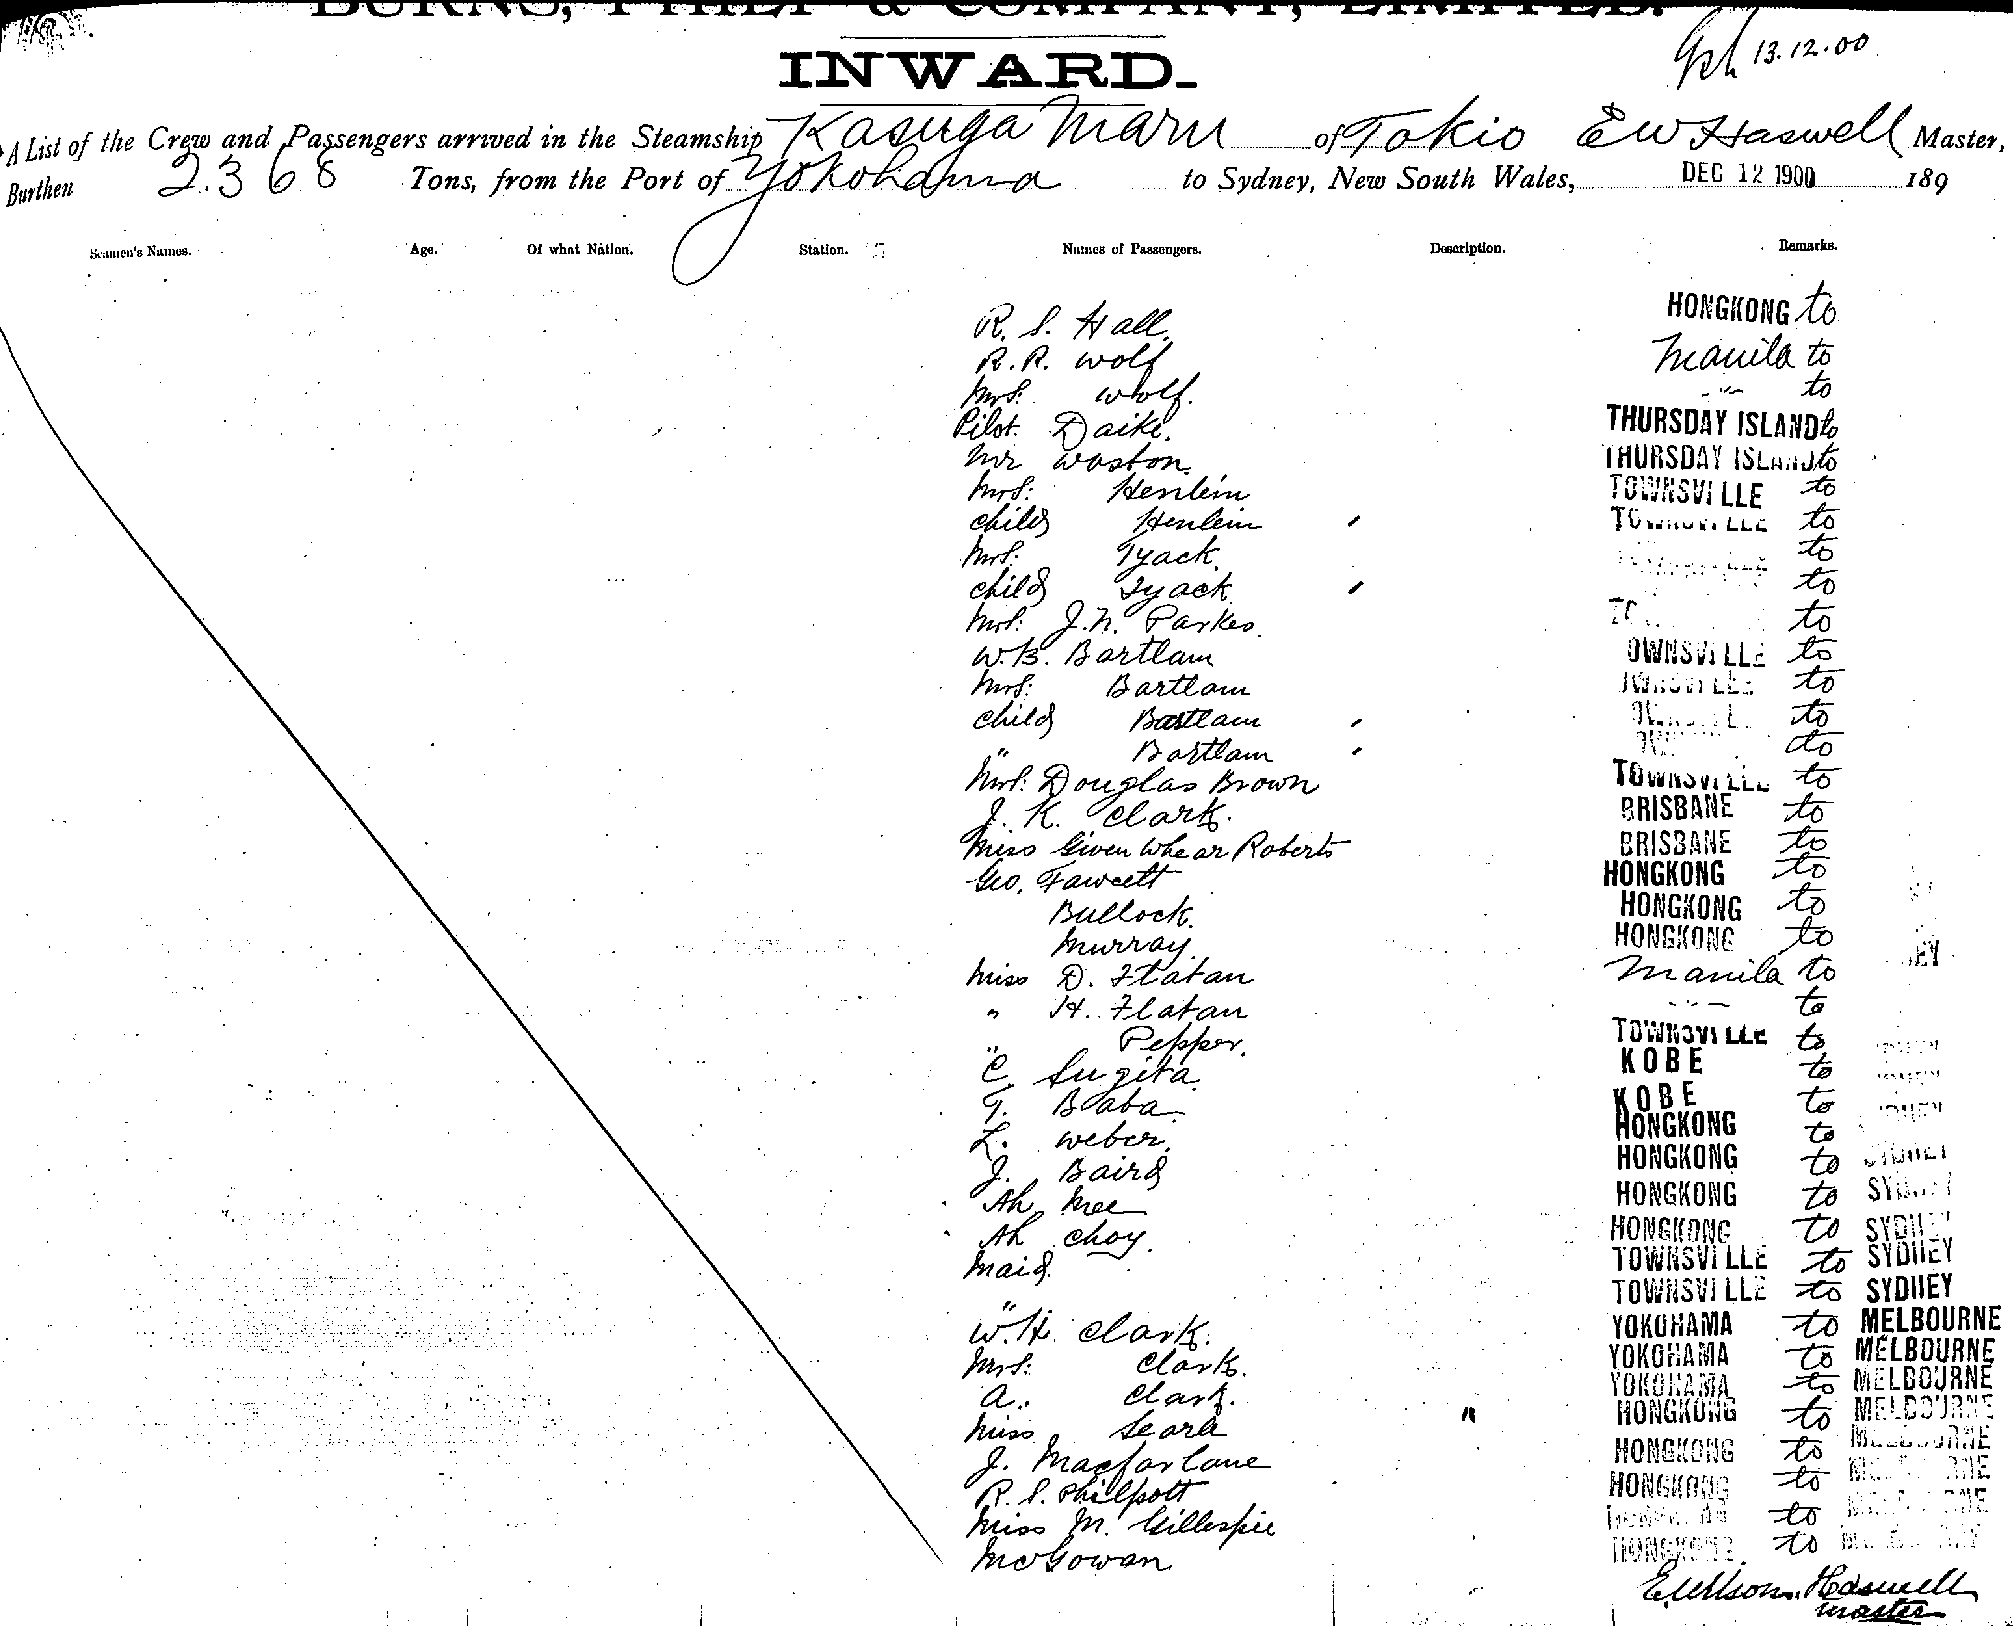 BURNS, PHILP & COMPANY, LIMITED.
INWARD.
13.12.00
A List of the Crew and Passengers arrived in the Steamship Kasuga Maru of Tokio E W Haswell Master,
Burthen 2.368 Tons, from the Port of Yokohama to Sydney, New South Wales, DEC 12 1900 189
Seamen's Names. Age. Of what Nation. Station. Names of Passengers. Description. Remarks.
R. S. Hall. HONGKONG to
R. R. Wolf Manila to
Mrs: Wolf. -"- to
Pilot. Daike. THURSDAY ISLAND to
Mr Waston. THURSDAY ISLAND to
Mrs: Henlein TOWNSVILLE to
child Henlein TOWNSVILLE to
Mrs: Tyack. to
child Tyack. to
Mrs: J. N. Parkes. to
W. B. Bartlam TOWNSVILLE to
Mrs: Bartlam TOWNSVILLE to
child Bartlam to
" Bartlam to
Mrs: Douglas Brown TOWNSVILLE to
J. K. Clark. BRISBANE to
Miss Roberts BRISBANE to
Geo. Fawcett HONGKONG to
Bullock. HONGKONG to
Murray. HONGKONG to
Miss D. Flatan Manila to
" H. Flatan -"- to
" Pepper. TOWNSVILLE to
C. Sugita. KOBE to
T. Baba. KOBE to
L. Weber. HONGKONG to
J. Baird HONGKONG to SYDNEY
Ah Mee HONGKONG to SYDNEY
Ah Choy. HONGKONG to SYDNEY
Maid. TOWNSVILLE to SYDNEY
" TOWNSVILLE to SYDNEY
W. H. Clark. YOKOHAMA to MELBOURNE
Mrs: Clark. YOKOHAMA to MELBOURNE
A. Clark. YOKOHAMA to MELBOURNE
Miss Searle " HONGKONG to MELBOURNE
J. Macfarlane HONGKONG to MELBOURNE
R. S. Philpott HONGKONG to MELBOURNE
Miss M. Gillespie to
McGowan HONGKONG to
E. Wilson Haswell
Master